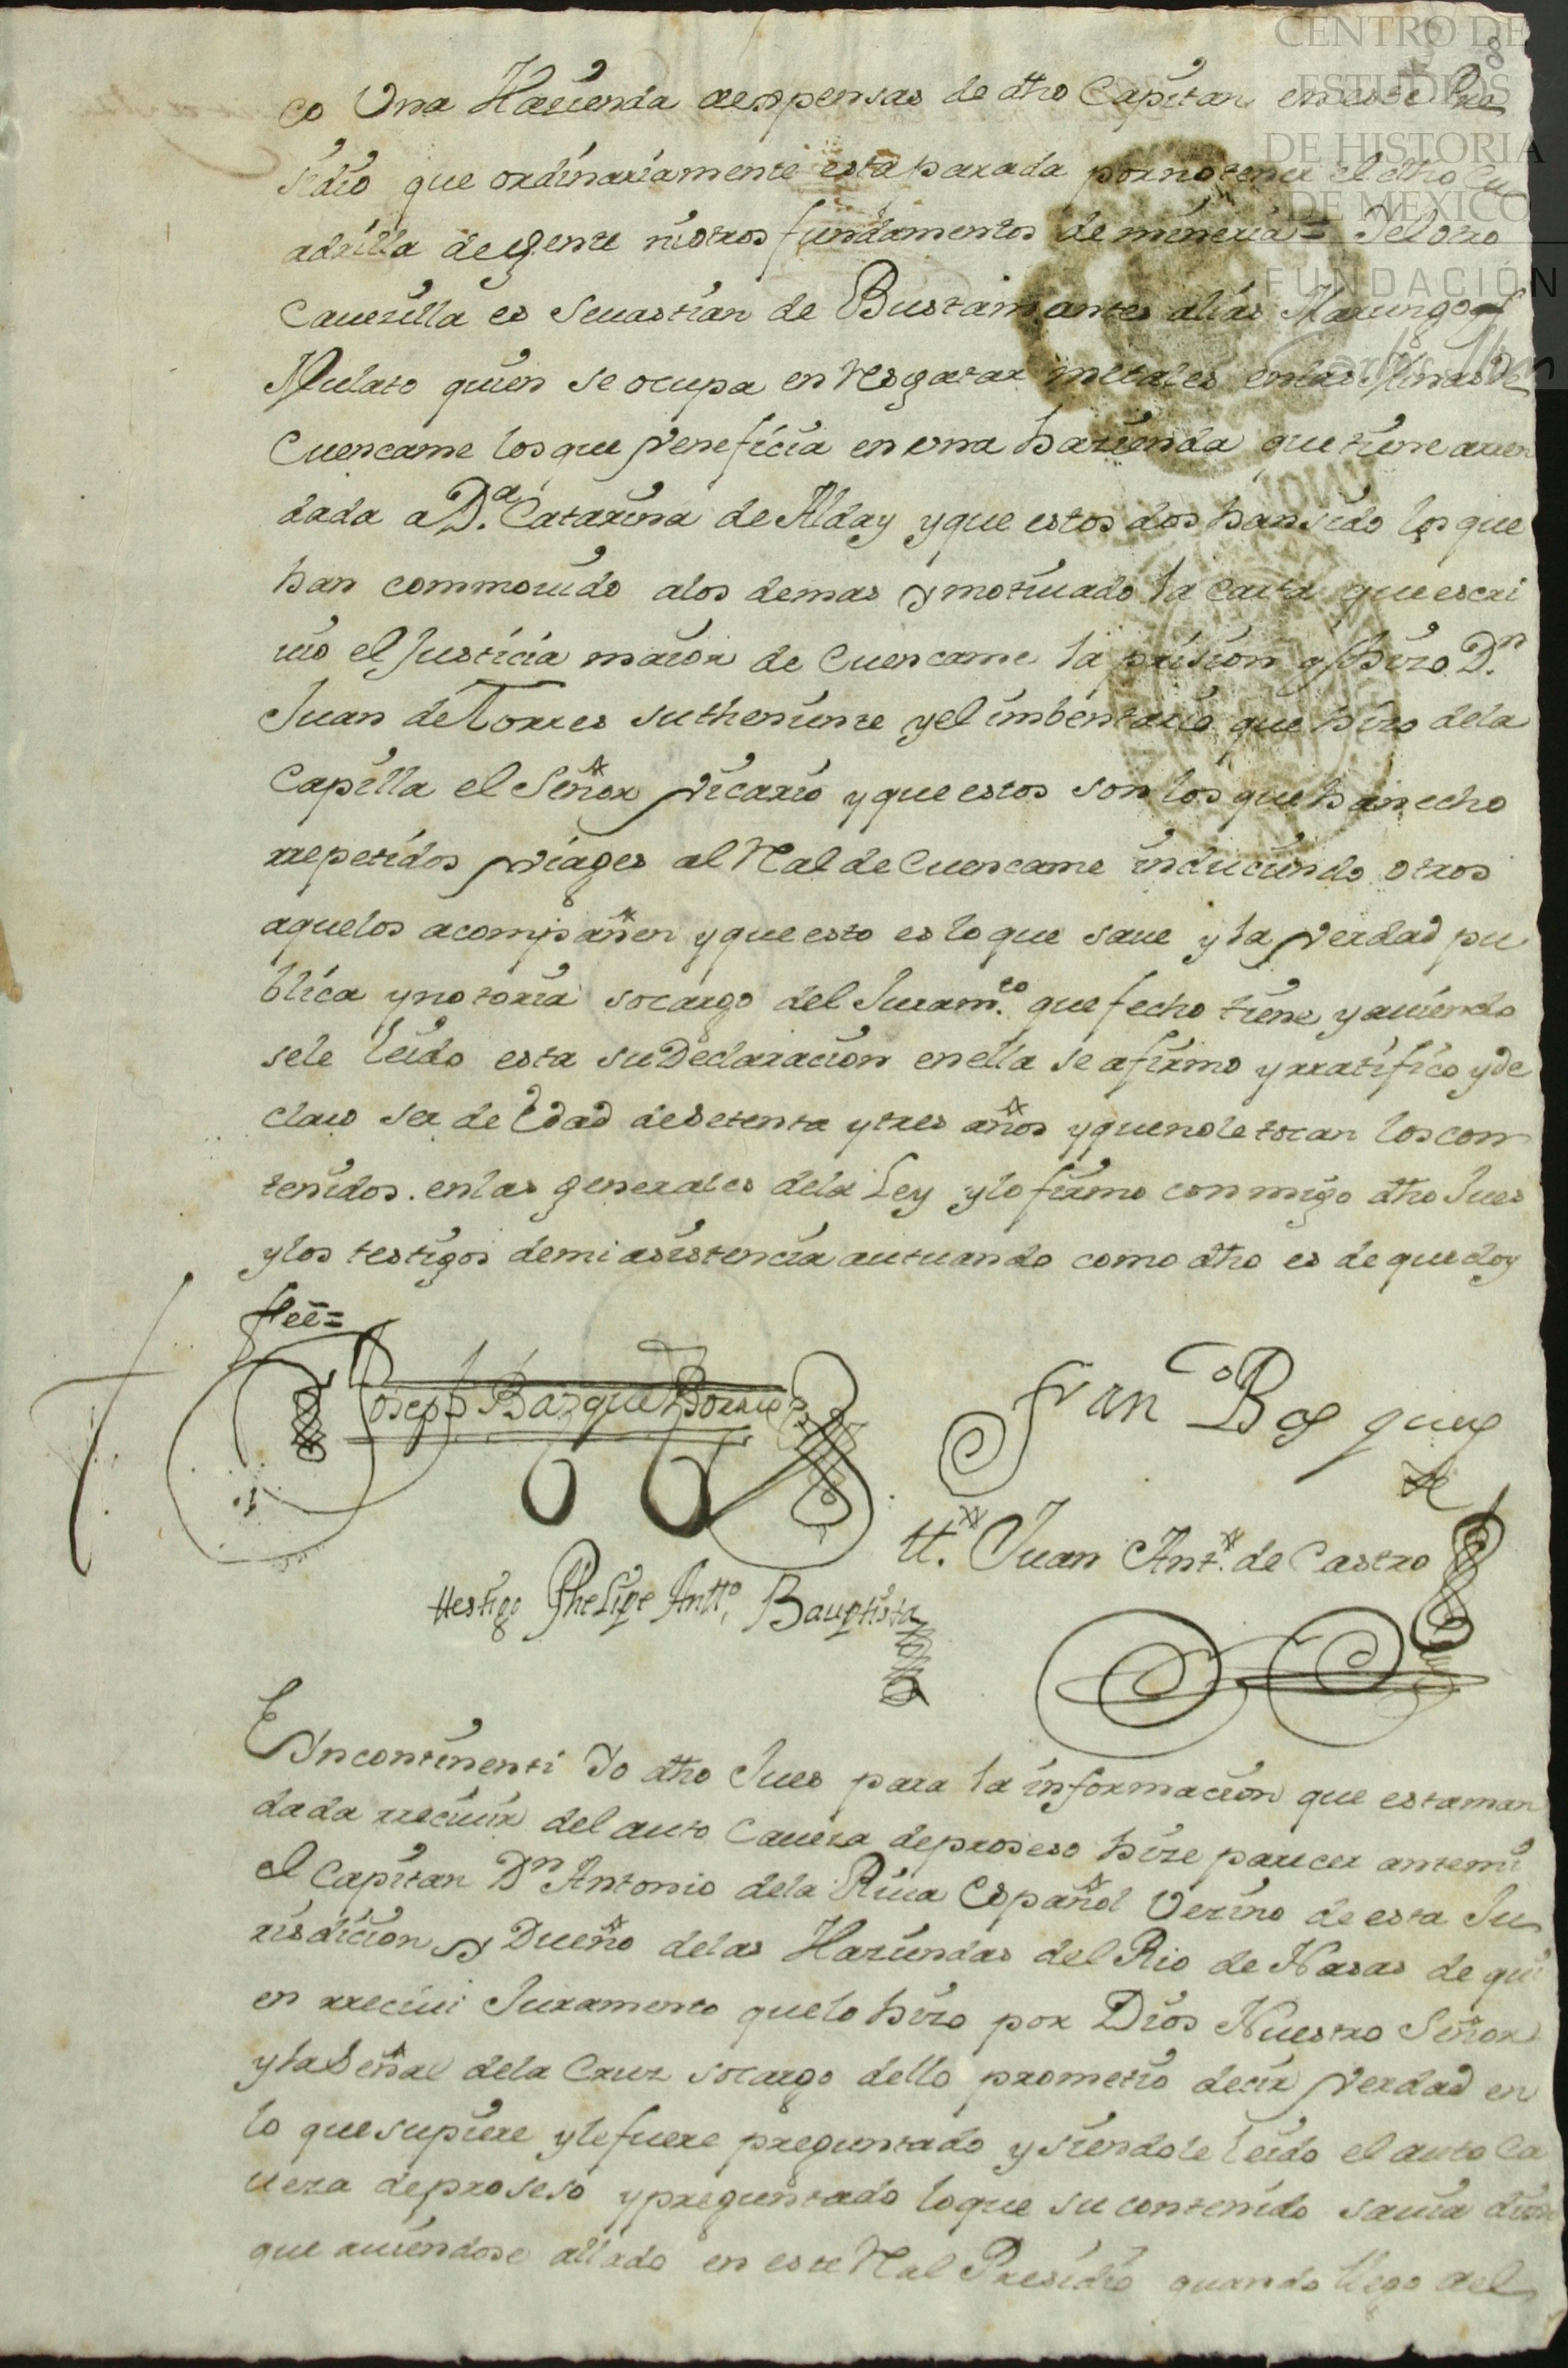 8
CENTRO DE
ESTUDIOS
DE HISTORIA
DE MEXICO
FUNDACIÓN
Carlos Slim
co Una Hacienda aexpensas de dho Capitan en este Pre
sidio que ordinariamente esta parada por no tener el dho cu
adrilla de gente ni otros fundamentos de mineria = Y el otro
Cauesilla es Seuastian de Bustamantes alias
Mulato quien se ocupa en resgatar metales en las Minas de
Cuencame los que veneficia en vna hazienda que tiene arren
dada a D.ª Catarina de Alday y que estos dos han sido los que
han commouido alos demas y motiuado la carta que escri
uio el Justicia maior de Cuencame la prision q hizo D.n
Juan de Torres su theniente y el imbentario que hizo dela
Capilla el Señor Vicario y que estos son los que han echo
rrepetidos viages al Rl de Cuencame induciendo otros
aquelos acompañen y que esto es lo que saue y la verdad pu
blica y notoria socargo del Juram.to que fecho tiene y auiendo
sele leido esta su Declaracion en ella se afirmo y rratifico y de
claro ser de Edad de Setenta y tres años y quenole tocan los con
tenidos en las generales dela Ley y lo firmo conmigo dho Jues
y los testigos de mi asistencia autuando como dho es de que doy
fee=
Joseph Bazque Borrue
Franco Basques
tt. Juan Ant. de Castro
ttestigo Phelipe Antto. Bauptista
En Yncontinenti Yo dho Jues para la informacion que esta man
dada rreciuir del auto Caueza de proseso hize parecer ante mi
el Capitan Dn Antonio dela Riua Español Vezino de esta Ju
risdicion y Dueño delas Haziendas del Rio de Nasas de qui
en rreciui Juramento quelo hizo por Dios Nuestro Señor
y la Señal dela Cruz socargo dello prometio decir verdad en
lo que supiere y le fuere preguntado y siendole leido el auto Ca
ueza de proseso y preguntado lo que su contenido sauia dixo
que auiendose allado en este Rl Presidio quando llego del